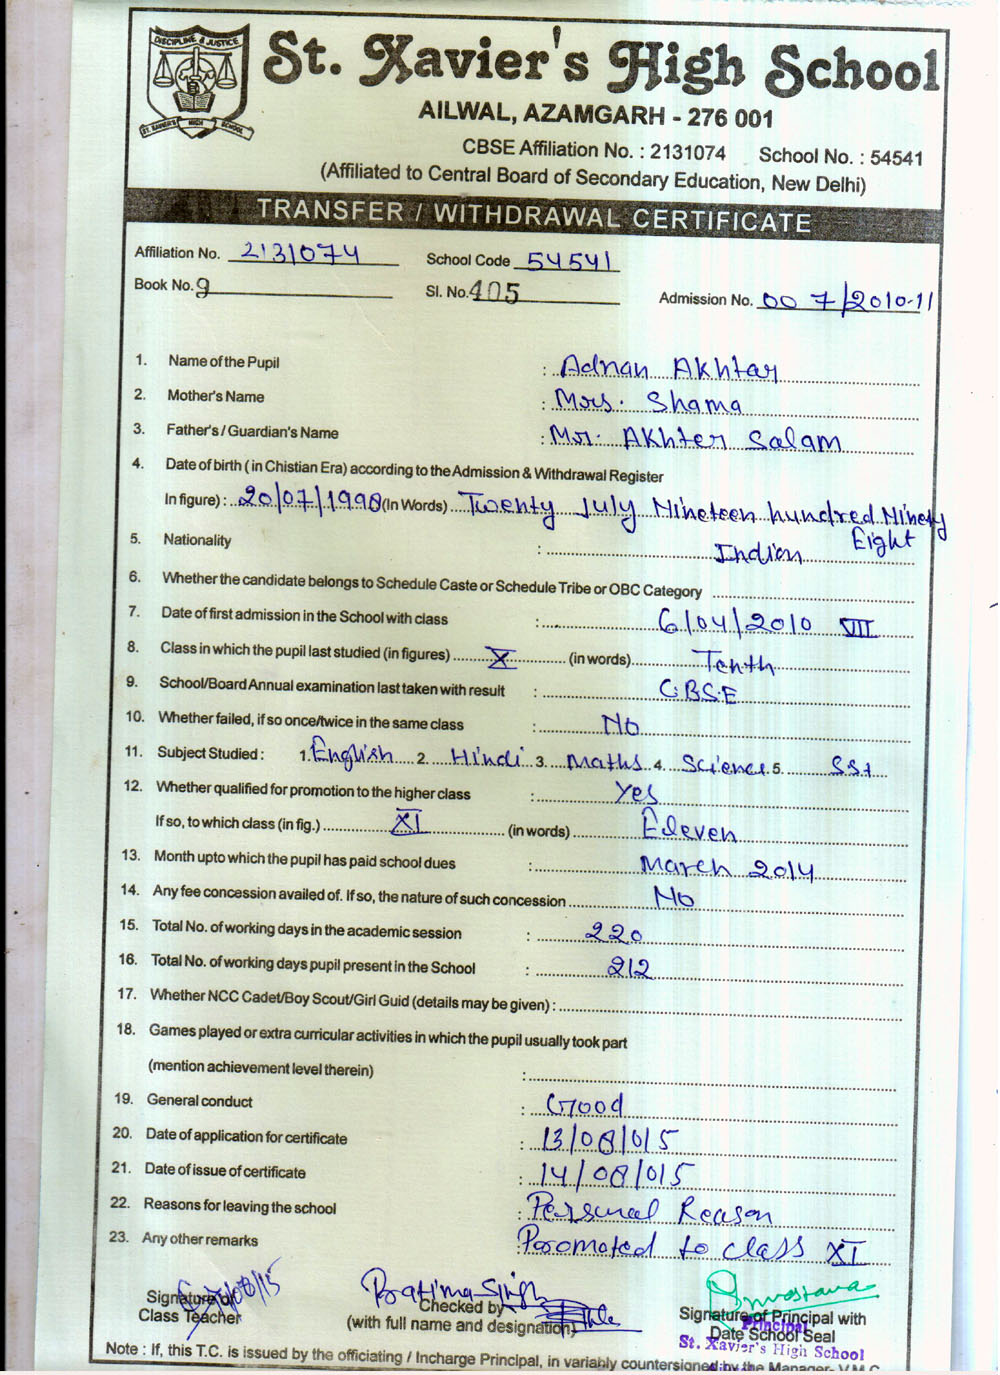 DISCIPLINE & JUSTICE
ST. XAVIER'S HIGH SCHOOL
St. Xavier's High School
AILWAL, AZAMGARH - 276 001
CBSE Affiliation No. : 2131074 School No. : 54541
(Affiliated to Central Board of Secondary Education, New Delhi)
TRANSFER / WITHDRAWAL CERTIFICATE
Affiliation No. 2131074 School Code 54541
Book No. 9 Sl. No. 405 Admission No. 007/2010-11
1. Name of the Pupil : Adnan Akhtar
2. Mother's Name : Mrs. Shama
3. Father's / Guardian's Name : Mr. Akhter Salam
4. Date of birth ( in Chistian Era) according to the Admission & Withdrawal Register
In figure) : 20/07/1998 (In Words) Twenty July Nineteen hundred Ninety Eight
5. Nationality : Indian
6. Whether the candidate belongs to Schedule Caste or Schedule Tribe or OBC Category
7. Date of first admission in the School with class : 6/04/2010 VII
8. Class in which the pupil last studied (in figures) X (in words) Tenth
9. School/Board Annual examination last taken with result : C.B.S.E
10. Whether failed, if so once/twice in the same class : No
11. Subject Studied : 1. English 2. Hindi 3. Maths 4. Science 5. SSt
12. Whether qualified for promotion to the higher class : Yes
If so, to which class (in fig.) XI (in words) Eleven
13. Month upto which the pupil has paid school dues : March 2014
14. Any fee concession availed of. If so, the nature of such concession No
15. Total No. of working days in the academic session : 220
16. Total No. of working days pupil present in the School : 212
17. Whether NCC Cadet/Boy Scout/Girl Guid (details may be given) :
18. Games played or extra curricular activities in which the pupil usually took part
(mention achievement level therein) :
19. General conduct : Good
20. Date of application for certificate : 13/08/015
21. Date of issue of certificate : 14/08/015
22. Reasons for leaving the school : Personal Reason
23. Any other remarks : Promoted to class XI
Signature of
Class Teacher
Pratima Singh
Checked by
(with full name and designation)
Srivastava
Signature of Principal with
Date School Seal
Principal
St. Xavier's High School
Note : If, this T.C. is issued by the officiating / Incharge Principal, in variably countersigned by the Manager- V.M.C.